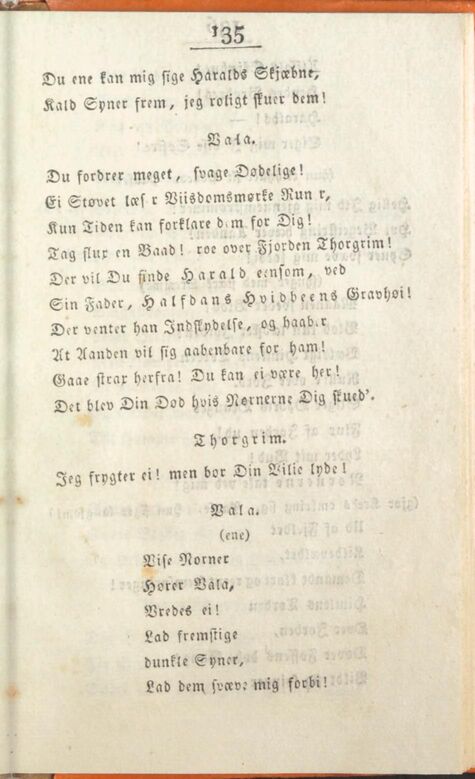 135
Du ene kan mig sige Haralds Skjæbne,
Kald Syner frem, jeg roligt skuer dem!
Vala.
Du fordrer meget, svage Dødelige!
Ei Støvet læs r Viisdomsmørke Run r,
Kun Tiden kan forklare d m for Dig!
Tag flux en Baad! roe over Fjorden Thorgrim!
Der vil Du finde Harald eensom, ved
Sin Fader, Halfdans Hvidbeens Gravhøi!
Der venter han Indskydelse, og haab r
At Aanden vil sig aabenbare for ham!
Gaae strax herfra! Du kan ei være her!
Det blev Din Død hvis Nornerne Dig skued'.
Thorgrim.
Jeg frygter ei! men bør Din Vilie lyde!
Vala.
(ene)
Vise Norner
Hører Vala,
Vredes ei!
Lad fremstige
dunkle Syner,
Lad dem svæve mig forbi!